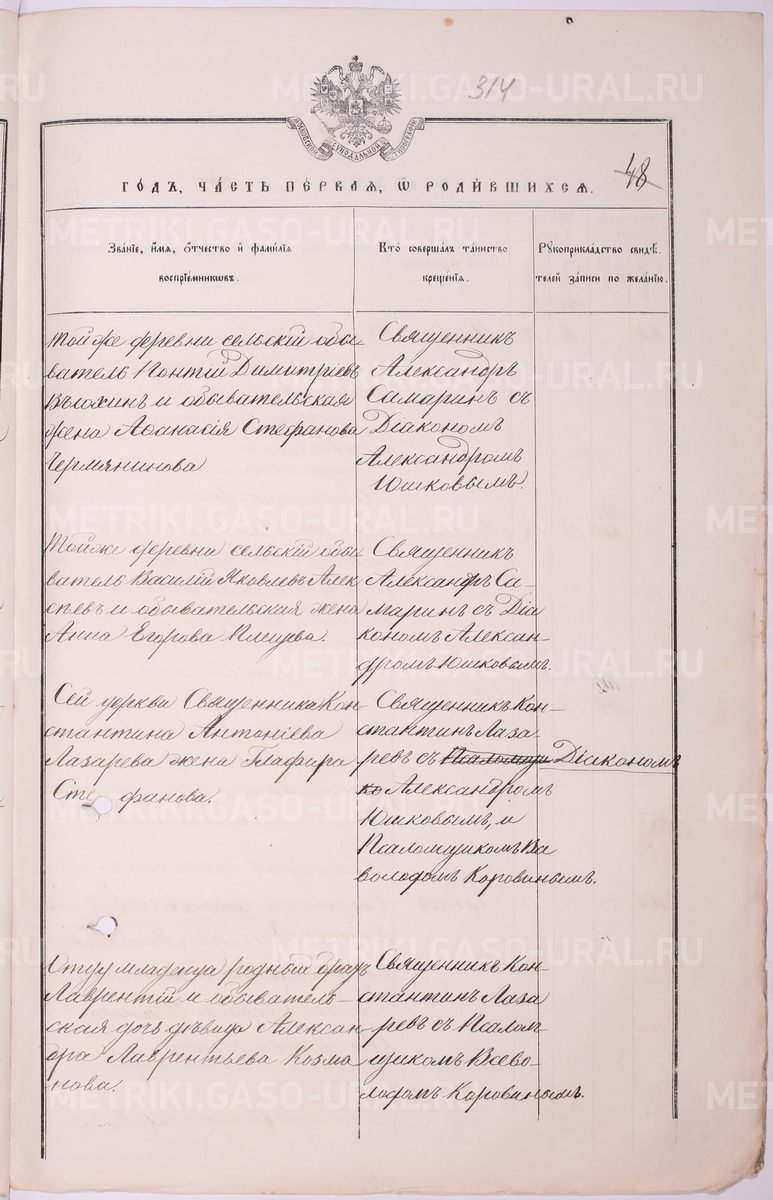 314
МОСКОВСКОЙ СѴНОДАЛЬНОЙ ТИПОГРАФІИ
48
ГО́ДЪ, ЧА́СТЬ ПЕ́РВАѦ, Ѽ РОДИ́ВШИХСѦ.
Зва́нїе, и҆́мѧ, ѻ҆́тчество и҆ фами́лїѧ
воспрїе́мниковъ.
Кто̀ соверша́лъ та́инство
креще́нїѧ.
Рꙋкоприкла́дство свидѣ́-
телей за́писи по жела́нїю.
Той же деревни сельскій обы
ватель Понтій Димитріевъ
Вѣлохинъ и обывательская
жена Аѳанасія Стефанова
Чермянинова
Священникъ
Александръ
Самаринъ съ
Діакономъ
Александромъ
Юшковымъ.
Тойже деревни сельскій обы
ватель Василій Яковлевъ Алек
сѣевъ и обывательская жена
Анна Егорова Плецева.
Священникъ
Александръ Са-
маринъ съ Діа
кономъ Алексан-
дромъ Юшковымъ.
Сей церкви Священника Кон
стантина Антоніева
Лазарева жена Глафира
Сте фанова.
Священникъ Кон-
стантинъ Лаза-
ревъ съ Псаломщи Діакономъ
ко Александромъ
Юшковымъ, и
Псаломщикомъ Вс
володомъ Коровинымъ.
Отцу младенца родный братъ
Лаврентій и обыватель-
ская дочь дѣвица Алексан-
дра Лаврентьева Козма
нова.
Священникъ Кон-
стантинъ Лаза
ревъ съ Псалом-
щикомъ Всево-
лодомъ Коровинымъ.
METRIKI.GASO-URAL.RU